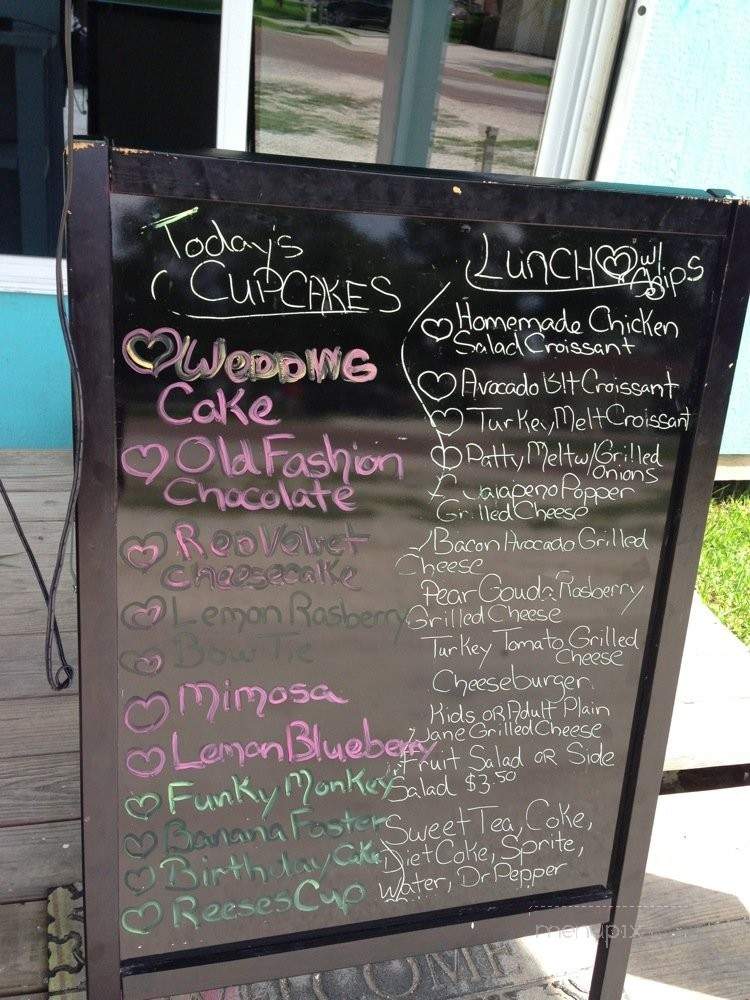 Today's
CUPCAKES
WEDDING
Cake
Old Fashion
Chocolate
Red Velvet
Cheesecake
Lemon Rasberry
Bow Tie
Mimosa
Lemon Blueberry
Funky Monkey
Banana Foster
Birthday Cake
Reeses Cup
LUNCH w/
Chips
Homemade Chicken
Salad Croissant
Avocado Blt Croissant
Turkey Melt Croissant
Patty Melt w/ Grilled
Onions
Jalapeno Popper
Grilled Cheese
Bacon Avocado Grilled
Cheese
Pear Gouda Rasberry
Grilled Cheese
Turkey Tomato Grilled
Cheese
Cheeseburger
Kids OR Adult Plain
Jane Grilled Cheese
Fruit Salad OR Side
Salad $3.50
Sweet Tea, Coke,
Diet Coke, Sprite,
Water, Dr Pepper
menupix
WELCOME